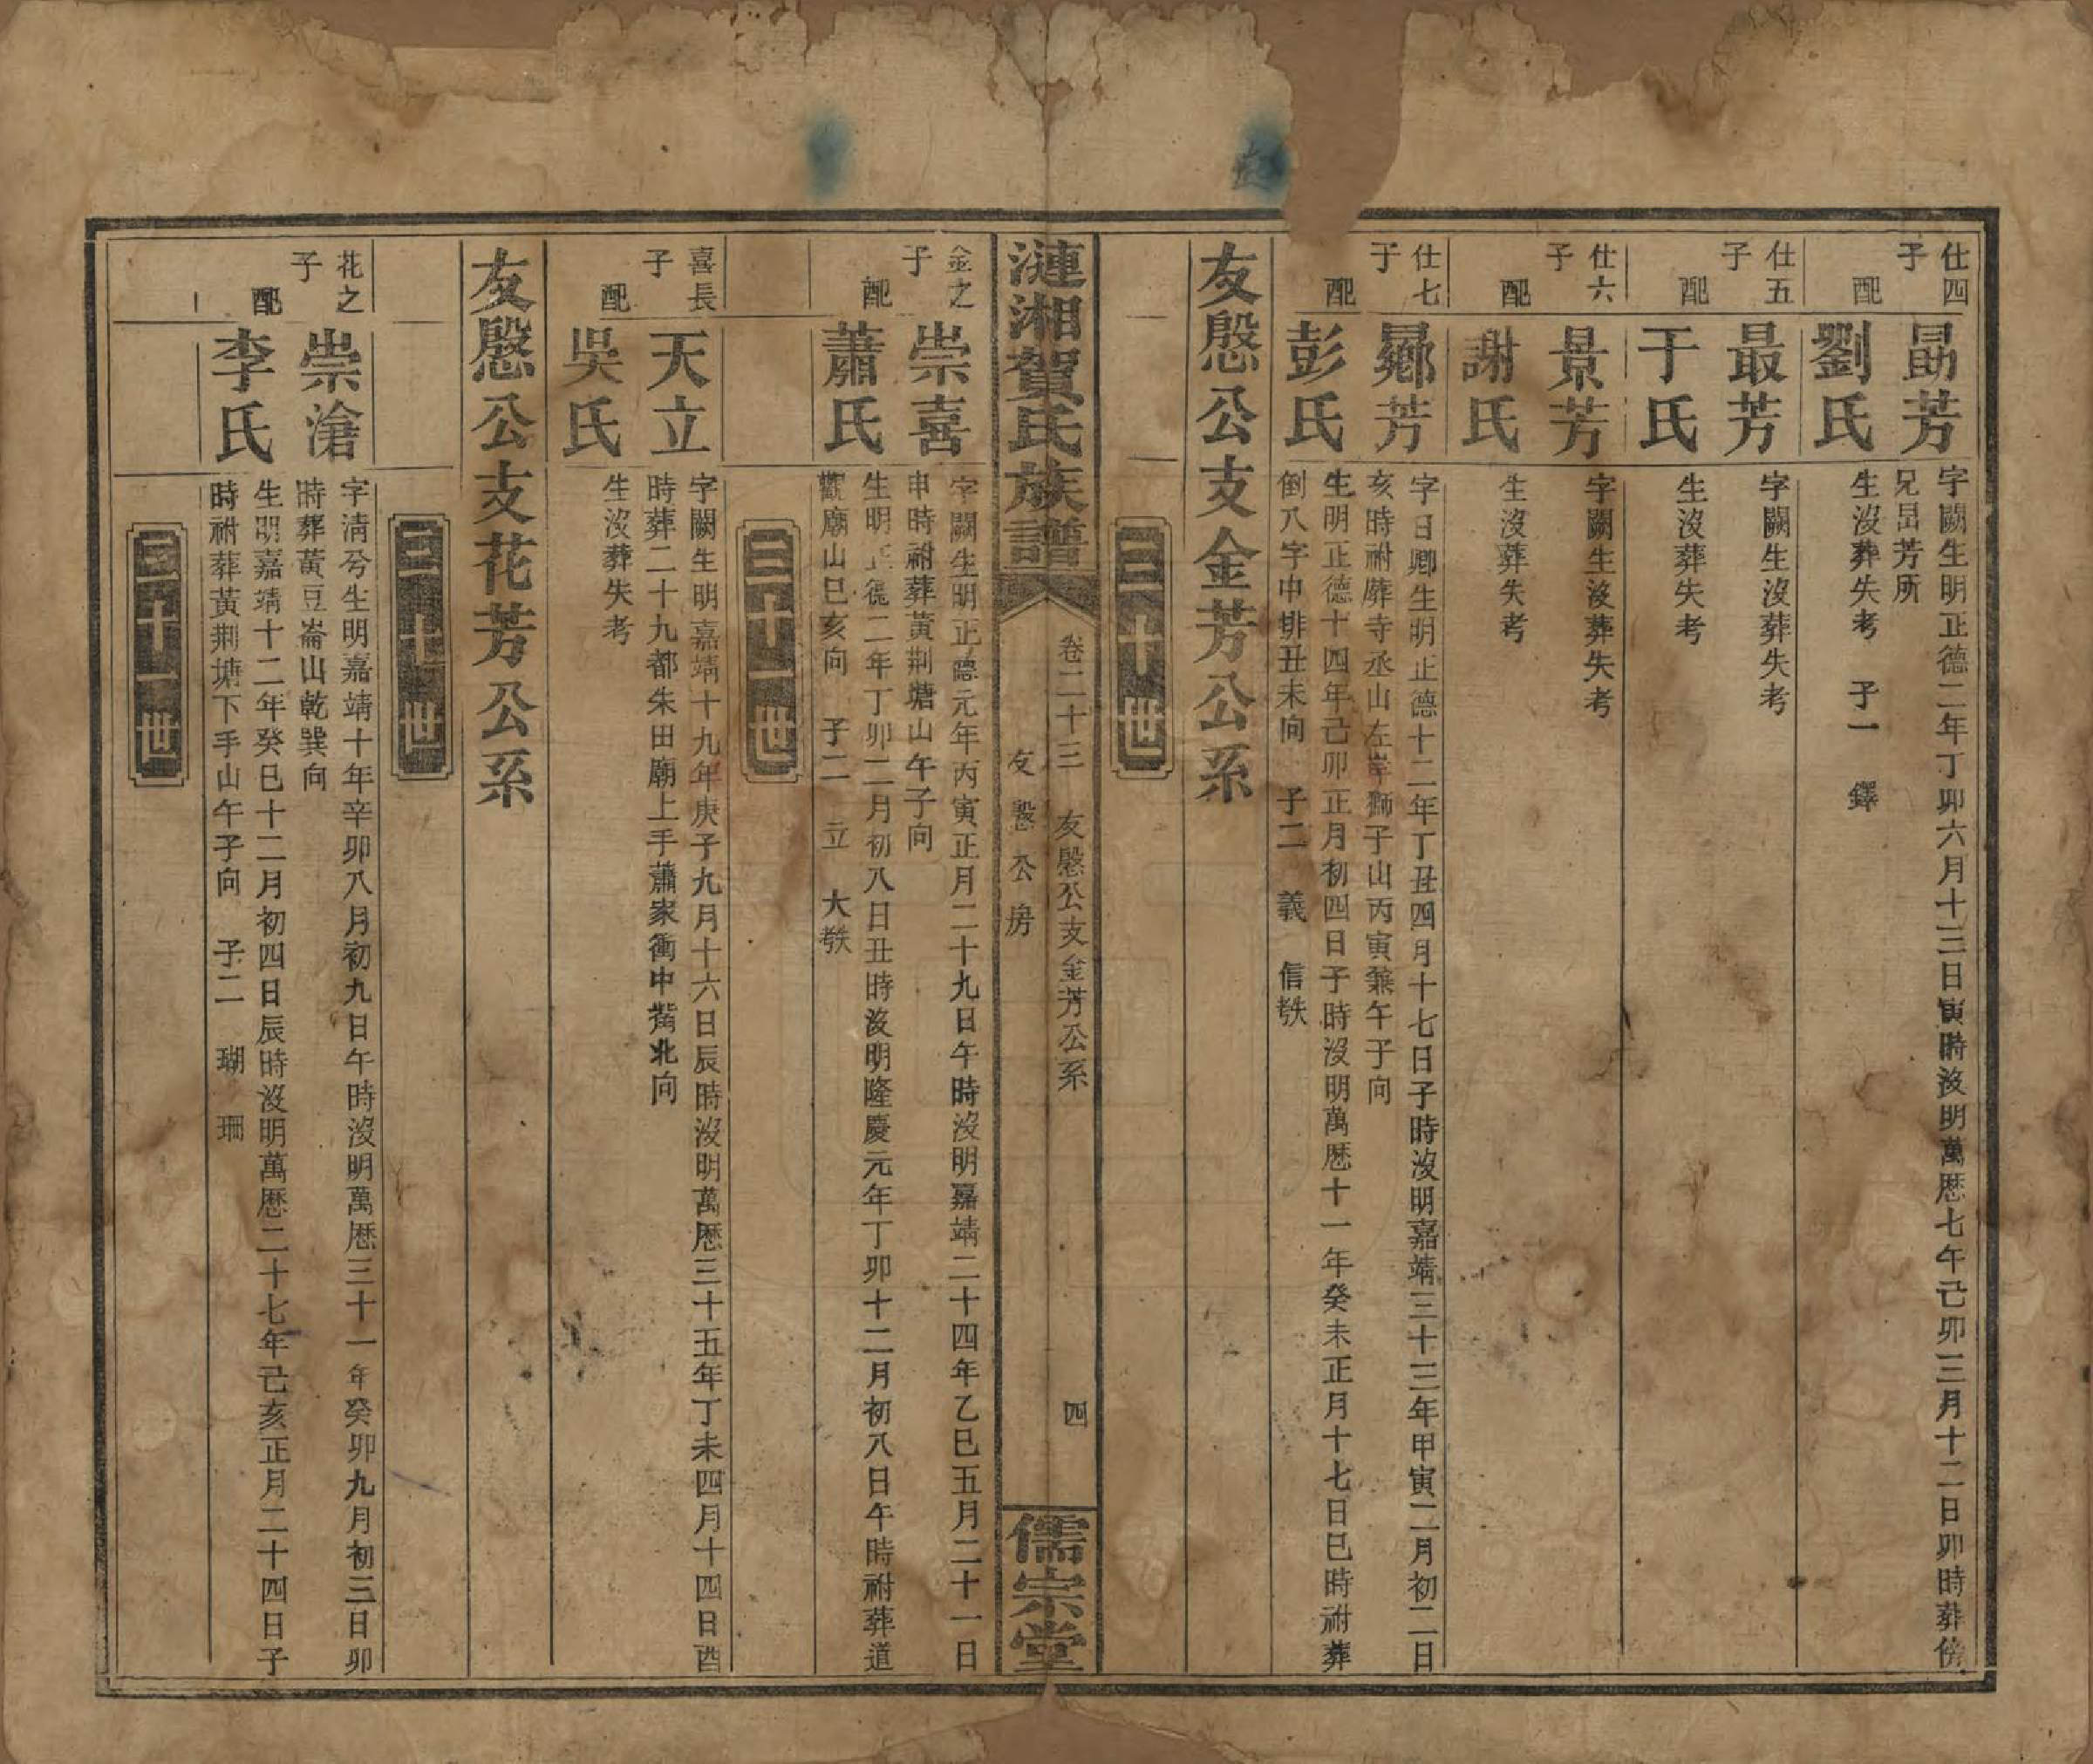 仕四子
勗芳
字闕生明正德二年丁卯六月十三日寅時沒明萬厯七午己卯三月十二日卯時葬傍
兄昂芳所
配
劉氏
生沒葬失考　子一　鐸
仕五子
最芳
字闕生沒葬失考
配
于氏
生沒葬失考
仕六子
景芳
字闕生沒葬失考
配
謝氏
生沒葬失考
仕七子
鄉芳
字日卿生明正德十二年丁丑四月十七日子時沒明嘉靖三十三年甲寅二月初二日
亥時祔葬寺丞山左岸獅子山丙寅兼午子向
配
彭氏
生明正德十四年己卯正月初四日子時沒明萬厯十一年癸未正月十七日巳時祔葬
倒八字中排丑未向　子二　義　信
友慇公支金芳公系
三十世
漣湘賀氏族譜
卷二十三　友慇公支金芳公系
友慇公房
四
儒宗堂
金之子
崇喜
字闕生明正德元年丙寅正月二十九日午時沒明嘉靖二十四年乙巳五月二十一日
申時祔葬黃荆塘山午子向
配
蕭氏
生明正德二年丁卯二月初八日丑時沒明隆慶元年丁卯十二月初八日午時祔葬道
觀廟山巳亥向　子二　立　大
三十一世
喜長子
天立
字闕生明嘉靖十九年庚子九月十六日辰時沒明萬厯三十五年丁未四月十四日酉
時葬二十九都朱田廟上手蕭家衝中嘴北向
配
吳氏
生沒葬失考
友慇公支花芳公系
三十世
花之子
崇滄
字清兮生明嘉靖十年辛卯八月初九日午時沒明萬厯三十一年癸卯九月初三日卯
時葬黃豆崙山乾巽向
配
李氏
生明嘉靖十二年癸巳十二月初四日辰時沒明萬厯二十七年己亥正月二十四日子
時祔葬黃荆塘下手山午子向　子二　瑚　珊
三十一世